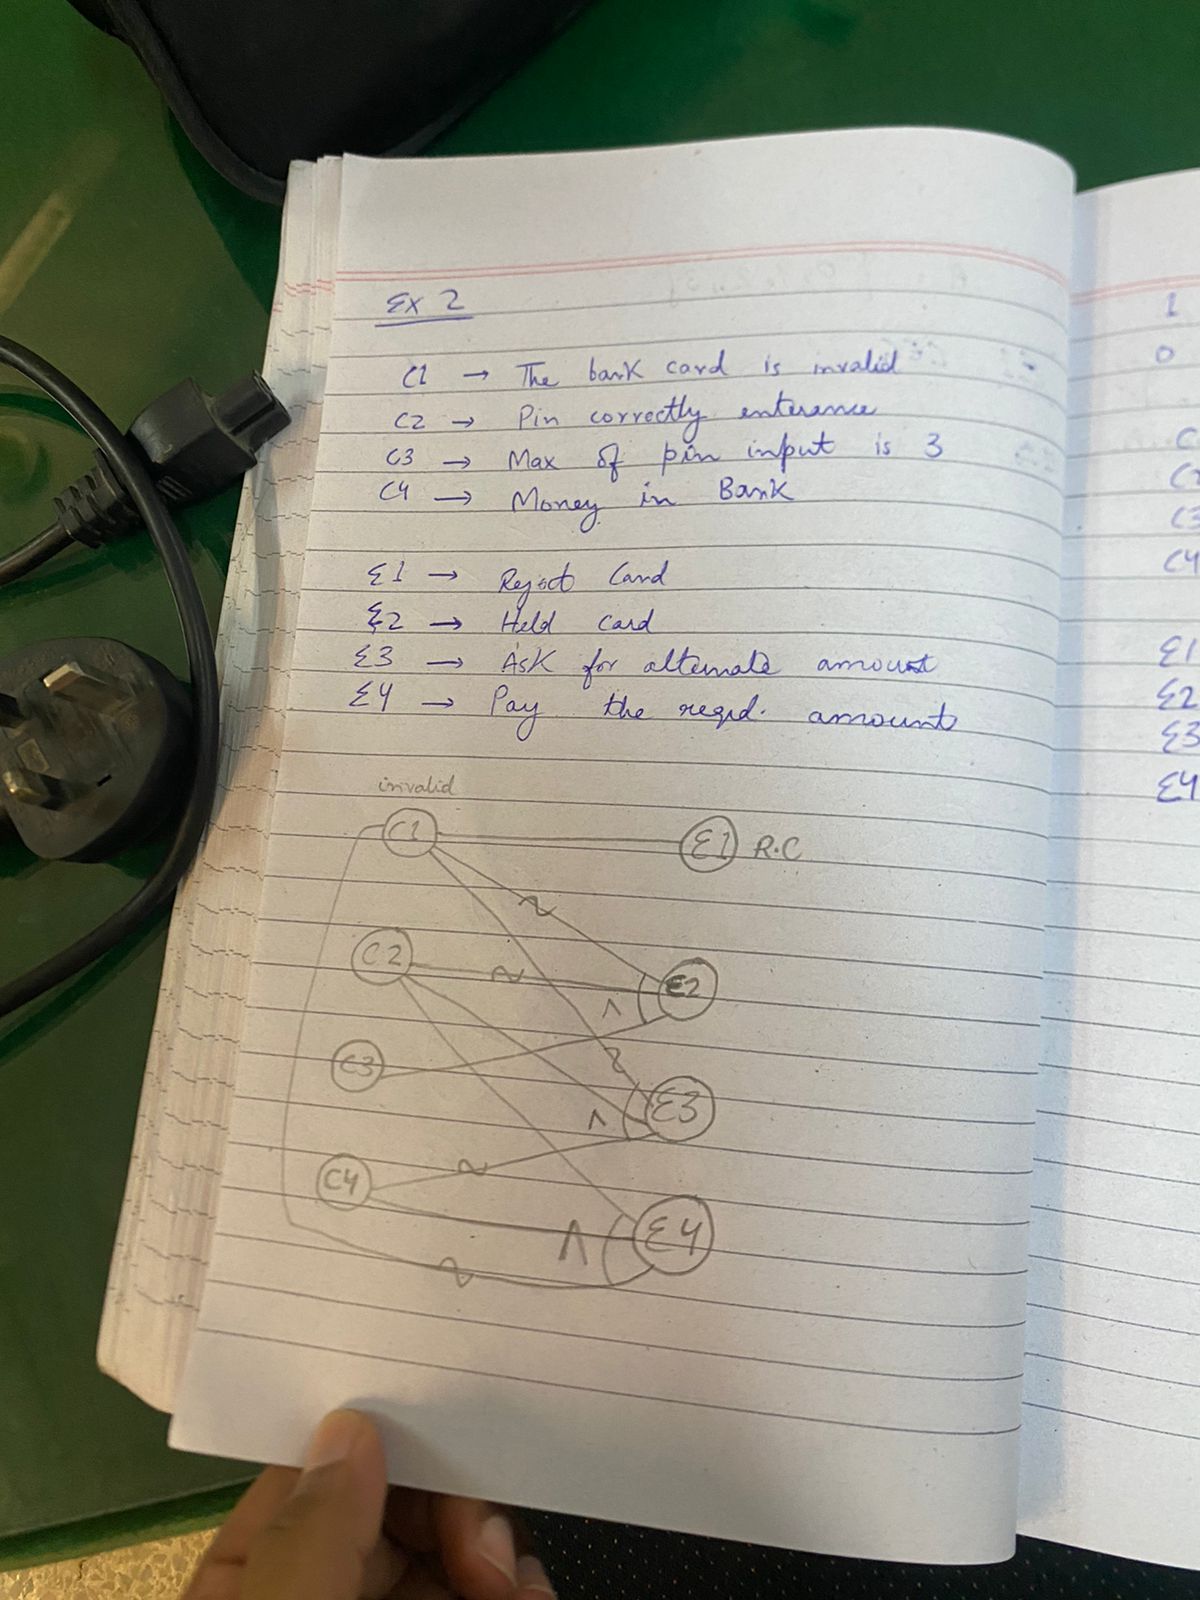 Ex 2
C1 → The bank card is invalid
C2 → Pin correctly enterence
C3 → Max of pin input is 3
C4 → Money in Bank
E1 → Reject Card
E2 → Held card
E3 → Ask for alternate amount
E4 → Pay the reqd. amount
invalid
C1 E1 R.C
~
C2 ~ E2
^
C3
~
E3
^
C4 ~
^ E4
~
1
0
C
C2
C3
C4
E1
E2
E3
E4